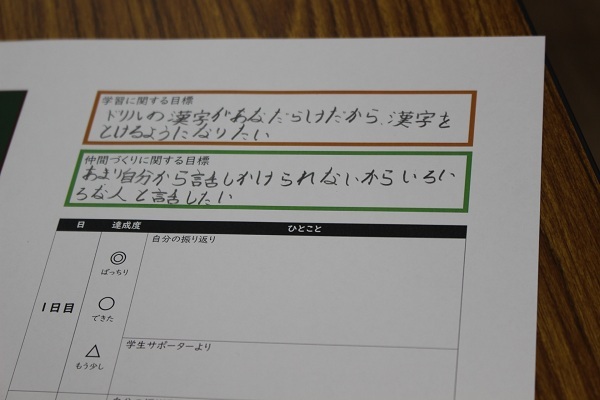 学習に関する目標
ドリルの漢字があなだらけだから、漢字を
とけるようになりたい
仲間づくりに関する目標
あまり自分から話しかけられないからいろい
ろな人と話したい
日 達成度 ひとこと
1日目
◎
ばっちり
○
できた
△
もう少し
自分の振り返り
学生サポーターより